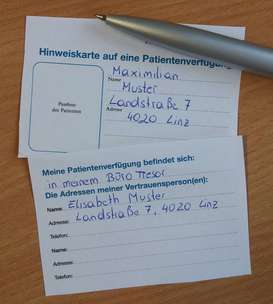 Hinweiskarte auf eine Patientenverfügung
Maximilian
Name
Muster
Passfoto
des Patienten
Landstraße 7
Adresse
4020 Linz
Meine Patientenverfügung befindet sich:
in meinem Büro Tresor
Die Adressen meiner Vertrauensperson(en):
Name: Elisabeth Muster
Adresse: Landstraße 7, 4020 Linz
Telefon:
Name:
Adresse:
Telefon: